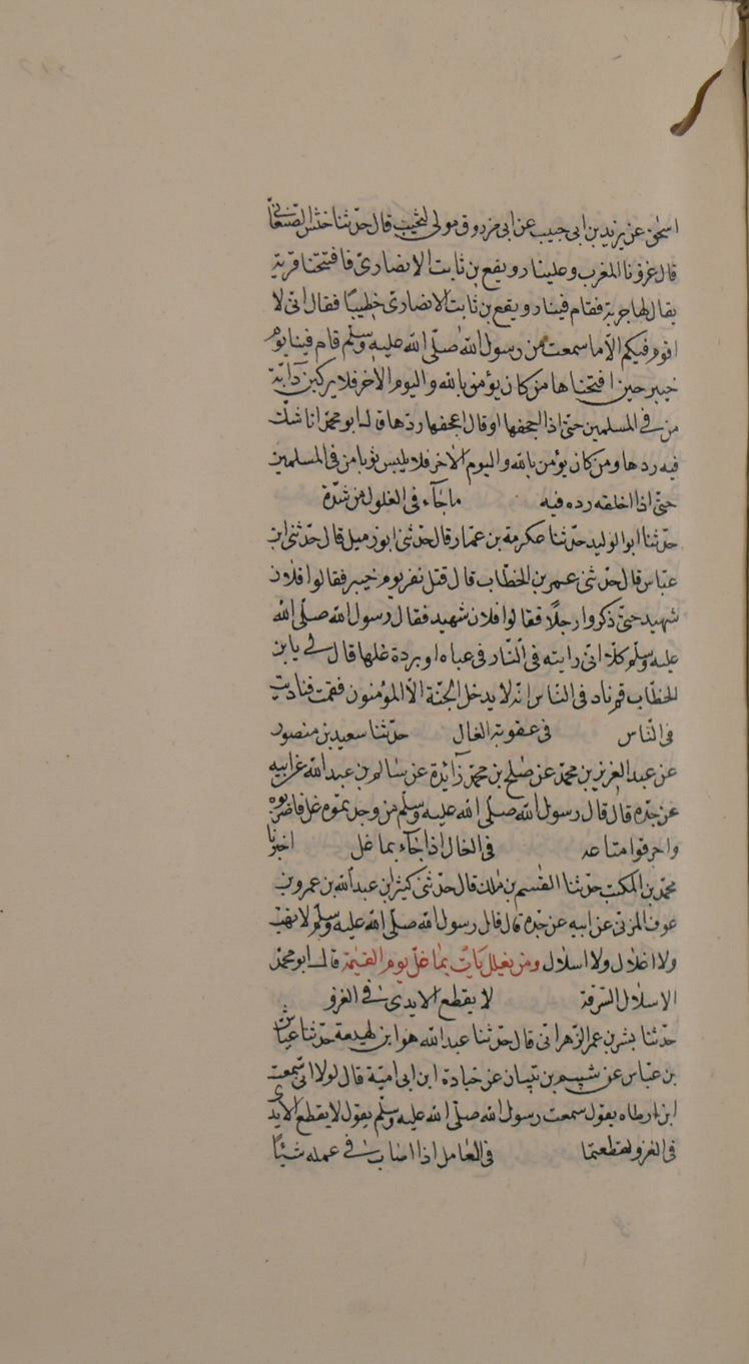 اسحق عن يزيد بن ابى حبيب عن ابى مرزوق مولى لتجيب قال حدثنا حنش الصنعانى
قال غزونا المغرب وعلينا رويفع بن ثابت الانصارى فافتتحنا قرية
يقال لها جربة فقام فينا رويفع بن ثابت الانصارى خطيبًا فقال انى لا
اقوم فيكم الا ما سمعت من رسول الله صلى الله عليه وسلم قام فينا يوم
خيبر حين افتتحناها من كان يؤمن بالله واليوم الاخر فلا يركبن دآبة
من فئ المسلمين حتى اذا اجحفها او قال اعجفها ردها قال ابو محمد انا شك
فيه ردها ومن كان يؤمن بالله واليوم الاخر فلا يلبس ثوبا من فئ المسلمين
حتى اذا اخلقه رده فيه ما جآء فى الغلول من شدة
حدثنا ابو الوليد حدثنا عكرمة بن عمار قال حدثنى ابو زميل قال حدثنى ابن
عباس قال حدثنى عمر بن الخطاب قال قتل نفر يوم خيبر فقالوا فلان
شهيد حتى ذكروا رجلًا فقالوا فلان شهيد فقال رسول الله صلى الله
عليه وسلم كلا انى رايته فى النار فى عباه او بردة غلها قال لى يا بن
الخطاب قم ناد فى الناس انه لا يدخل الجنة الا المؤمنون فقمت فناديت
فى الناس فى عقوبة الغال حدثنا سعيد بن منصور
عن عبد العزيز بن محمد عن صلح بن محمد زآئدة عن سالم بن عبد الله عن ابيه
عن جده قال قال رسول الله صلى الله عليه وسلم من وجدتموه غل فاضربوه
واحرقوا متاعه فى الغال اذا جآء بما غل اخبرنا
محمد بن المكتب حدثنا القسم بن ملك قال حدثنى كثير ابن عبد الله بن عمرو بن
عوف المزنى عن ابيه عن جده قال قال رسول الله صلى الله عليه وسلم لا نهب
ولا اغلال ولا اسلال ومن يغلل يات بما غل يوم القيمة قال ابو محمد
الاسلال السرقة لا يقطع الايدى فى الغزو
حدثنا بشر بن عمر الزهرانى قال حدثنا عبد الله هو ابن لهيعة حدثنا عياش
بن عباس عن شييم بن بيتان عن جنادة ابن ابى امية قال لولا انى سمعت
ابن ارطاه يقول سمعت رسول الله صلى الله عليه وسلم يقول لا يقطع الايدى
فى الغزو لقطعتها فى العامل اذا اصاب فى عمله شيئًا